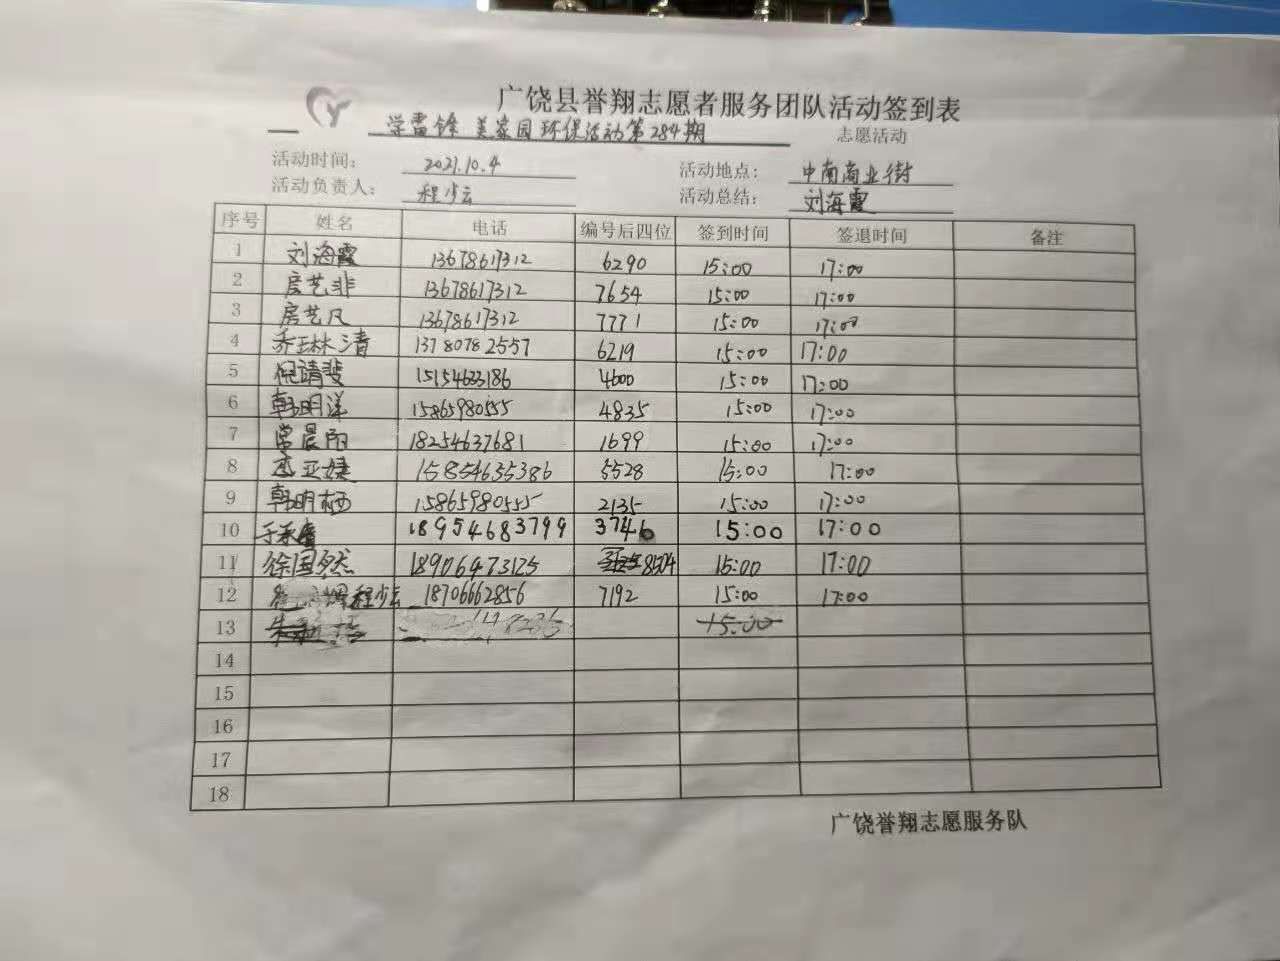 广饶县誉翔志愿者服务团队活动签到表
学雷锋 美家园环保活动第284期 志愿活动
活动时间: 2021.10.4 活动地点: 中南商业街
活动负责人: 程少云 活动总结: 刘海霞
序号 姓名 电话 编号后四位 签到时间 签退时间 备注
1 刘海霞 13678617312 6290 15:00 17:00
2 房艺非 13678617312 7654 15:00 17:00
3 房艺凡 13678617312 7771 15:00 17:00
4 乔琳清 13780782557 6219 15:00 17:00
5 倪靖斐 15154633186 4600 15:00 17:00
6 韩明洋 15865980555 4835 15:00 17:00
7 常晨雨 18254637681 1699 15:00 17:00
8 孟亚婕 15854635386 5528 15:00 17:00
9 韩明栖 15865980555 2135 15:00 17:00
10 于承 18954683799 3746 15:00 17:00
11 徐国然 18906473125 8504 15:00 17:00
12 程少云 18706662856 7192 15:00 17:00
13 15:00
14
15
16
17
18
广饶誉翔志愿服务队